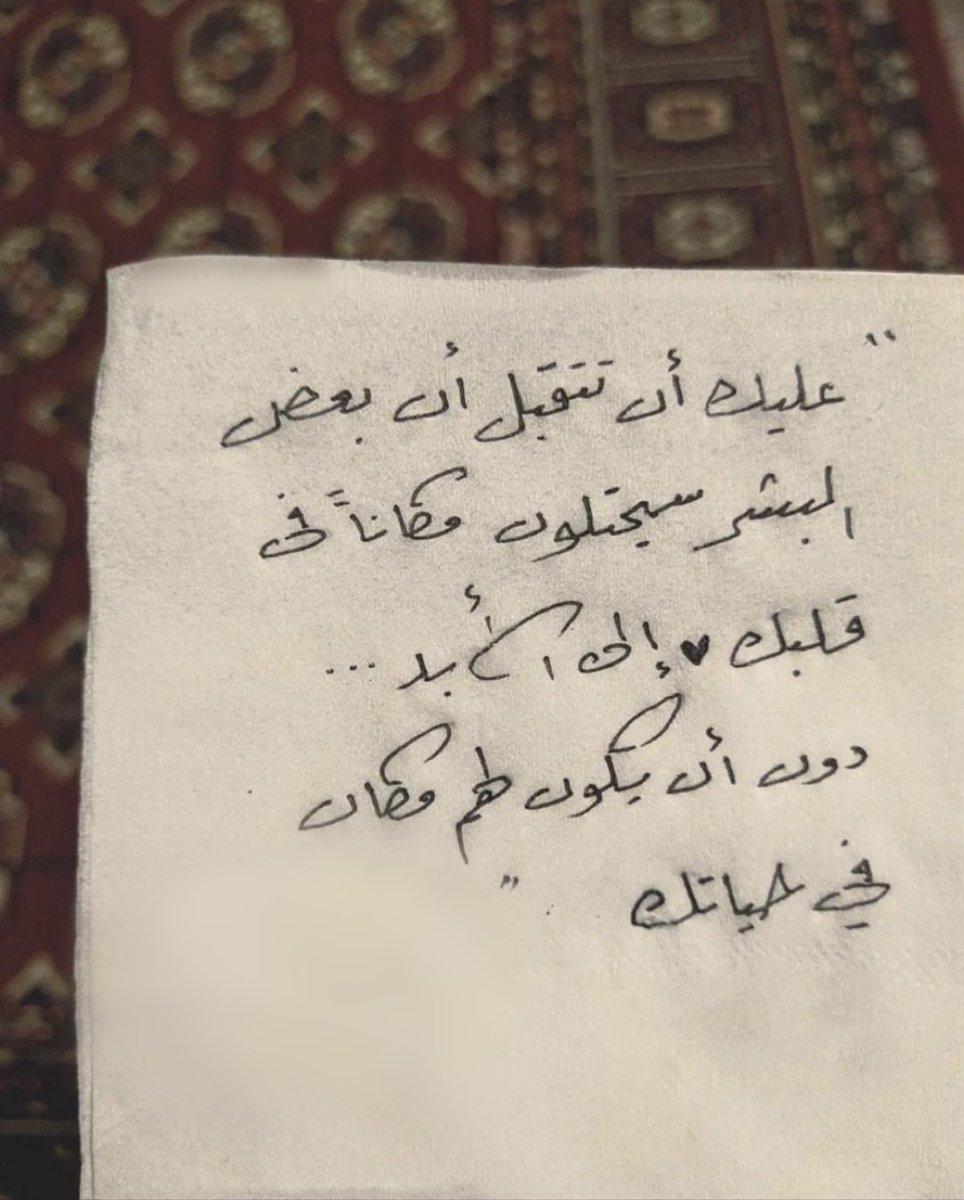 " عليك أن تتقبل أن بعض
البشر سيحتلون مكاناً في
قلبك ♥ إلى الأبد ...
دون أن يكون لهم مكان
في حياتك . "